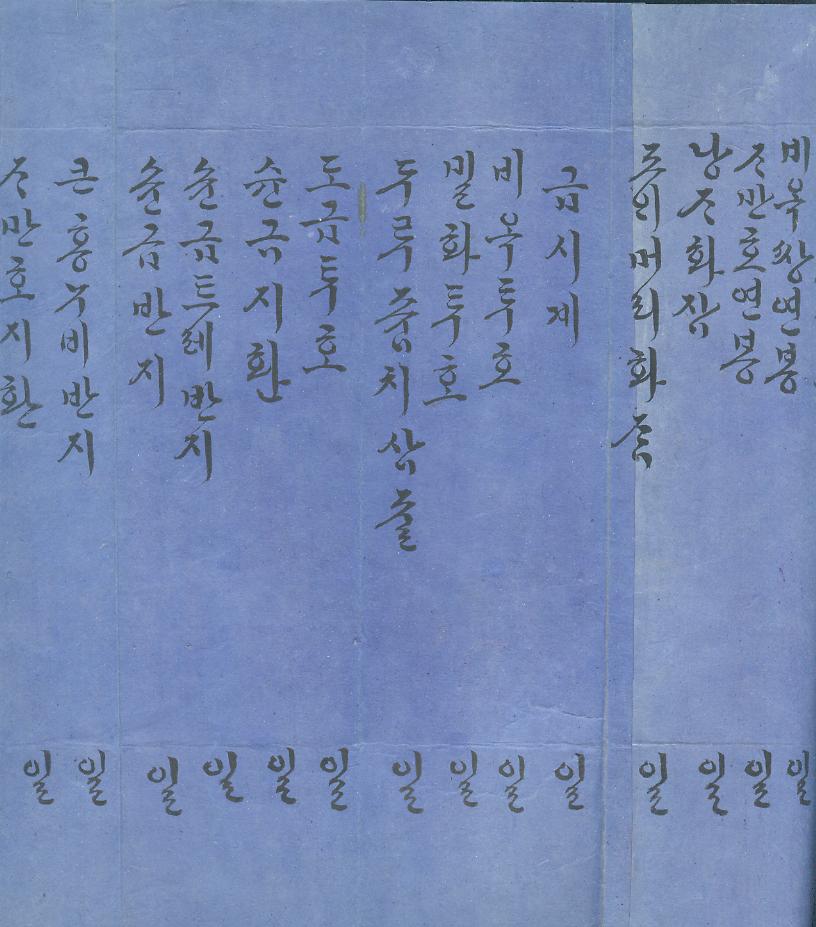 비옥쌍연봉 일
ᄌᆞ만호연봉 일
낭ᄌᆞ화잠 일
도ᄋᆡ머리화ᄌᆞᆷ 일
금시계 일
비옥투호 일
밀화투호 일
두루쥼치삼줄 일
도금투호 일
슌금지환 일
슌금트레반지 일
슌금반지 일
큰홍누비반지 일
ᄌᆞ만호지환 일